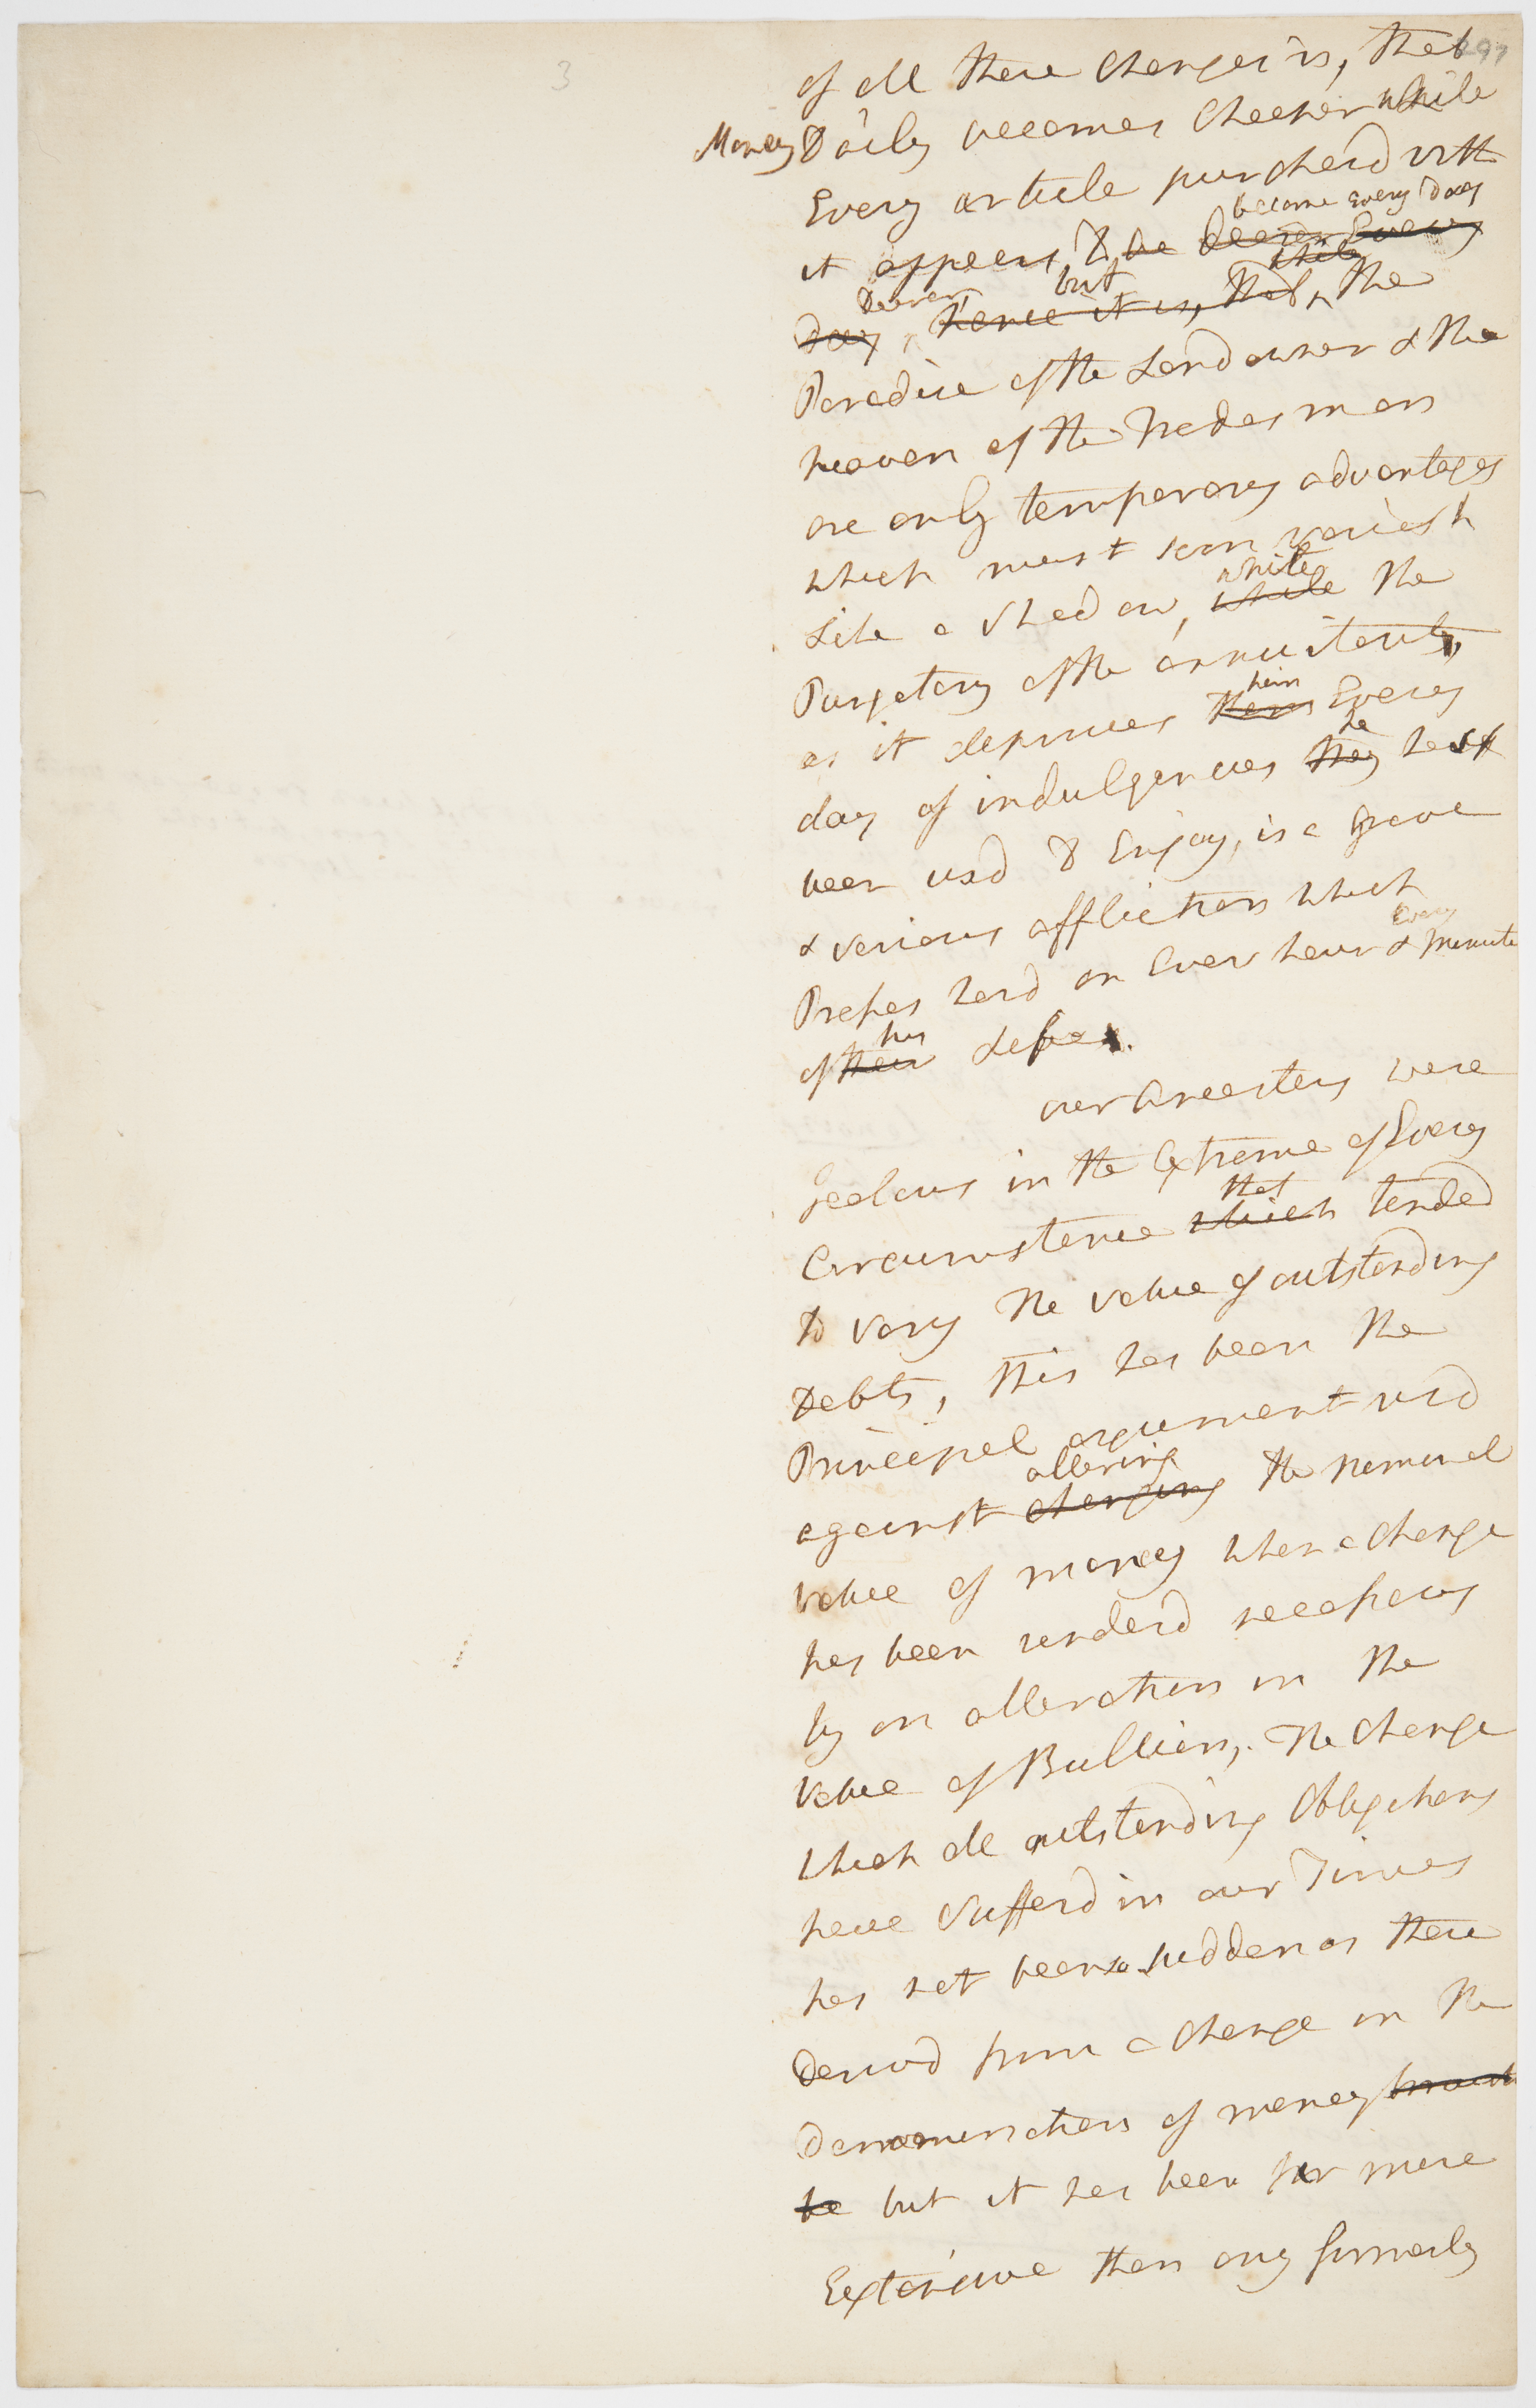 3
297
of all these Changes is, that
Money Daily becomes Cheaper while
Every article purchasd with
become Every Day
it appears to be dearer Every
Dearer but while
day, hence it is, that, the
Paradise of the Land owner & the
heaven of the Trades man
are only temporary advantages
which must soon vanish
while
Like a Shadow, while the
Purgatory of the annuitant,
him
as it deprives them Every
he
day of indulgences they has
been usd to Enjoy, is a grave
& serious affliction which
Every
Presses hard on Ever hour & minute
his
of their Life.
our Ancestors were
jealous in the Extreme of Every
that
Circumstance which tended
to vary the value of outstanding
Debts, this has been the
Principal argument usd
altering
against changing the nominal
value of money when a change
has been renderd necessary
by an alteration in the
value of Bullion, The change
which all outstanding Obligations
have Sufferd in our Times
has not been so sudden as those
Derivd from a change in the
Denomination of money
be but it has been far more
Extensive than any formerly